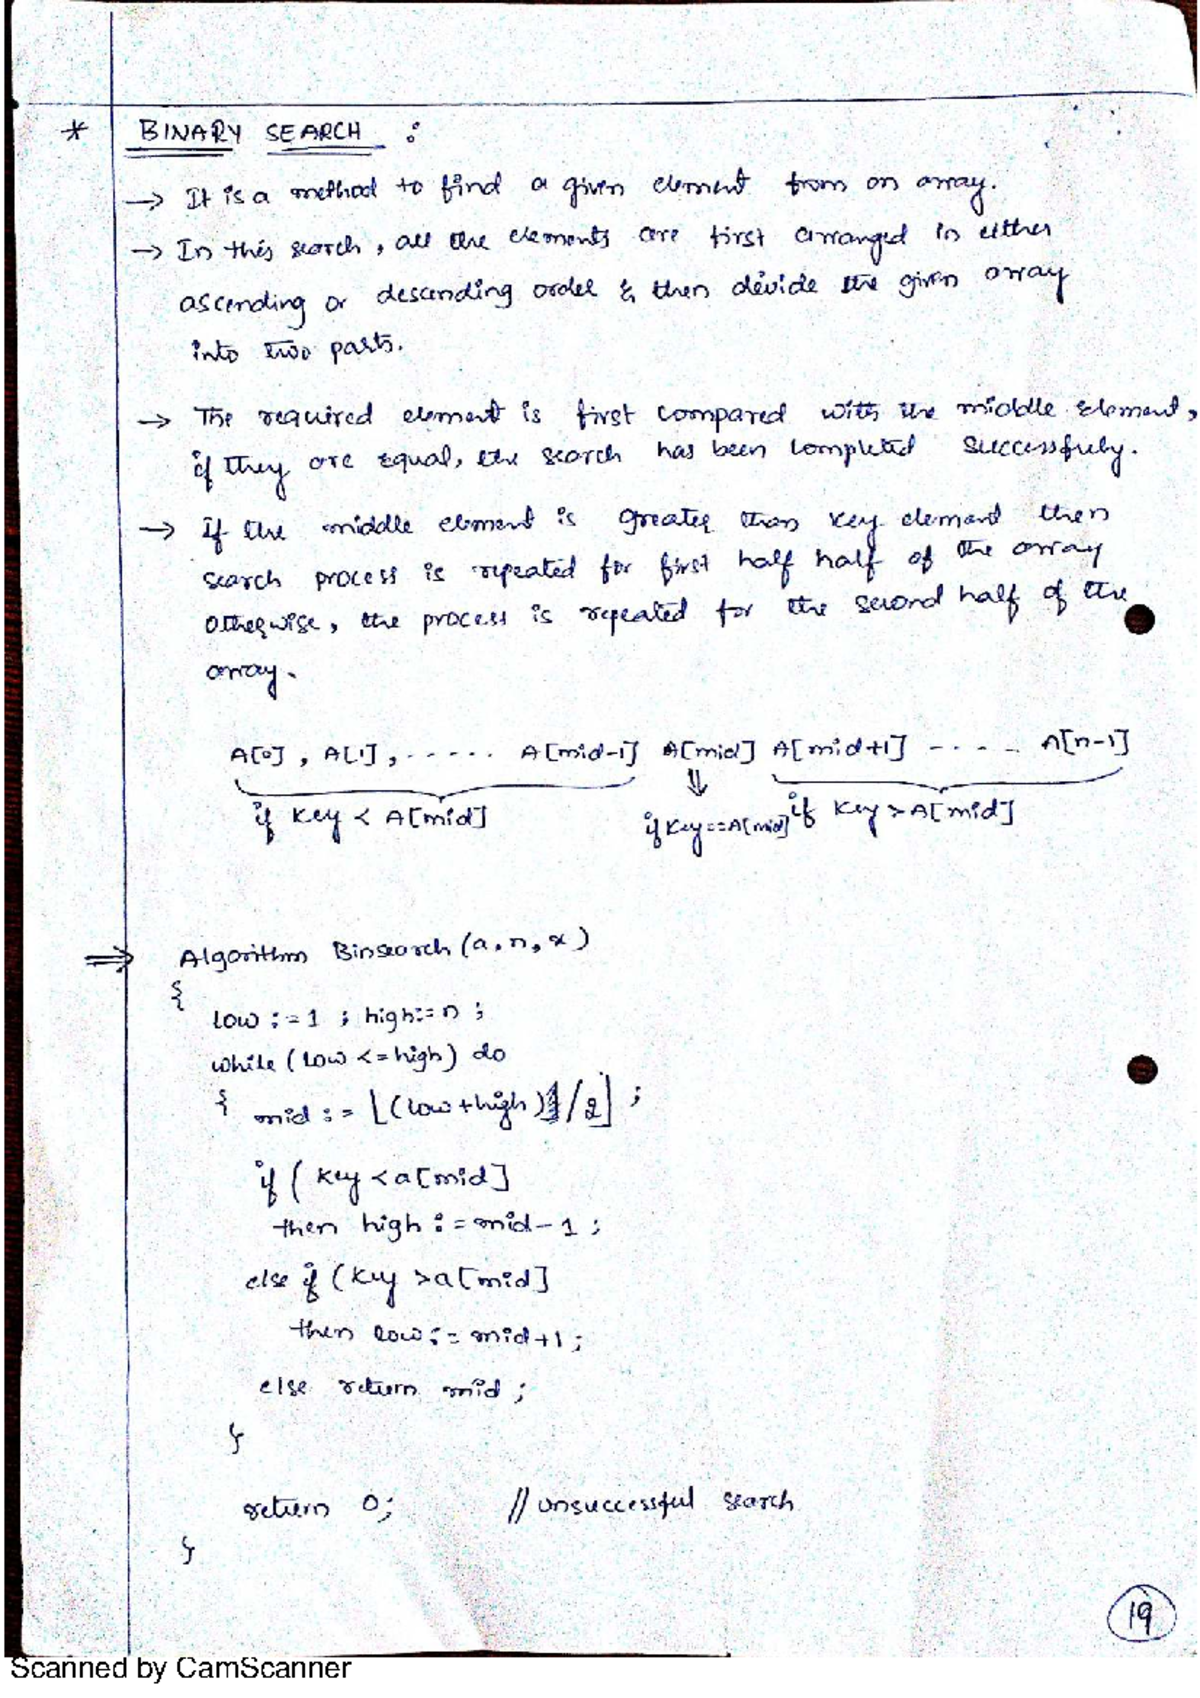 * BINARY SEARCH :
→ It is a method to find a given element from an array.
→ In this search, all the elements are first arranged in either
ascending or descending order & then devide the given array
into two parts.
→ The required element is first compared with the middle element,
if they are equal, the search has been completed successfully.
→ if the middle element is greater than key element then
search process is repeated for first half half of the array
otherwise, the process is repeated for the second half of the
array.
A[0], A[1], ----- A[mid-1] A[mid] A[mid+1] ---- A[n-1]
if key < A[mid] if key==A[mid] if key > A[mid]
⇒ Algorithm Binsearch (a, n, x)
{
low := 1 ; high := n ;
while (low <= high) do
{ mid := ⌊(low+high)/2⌋ ;
if ( key < a[mid]
then high := mid-1 ;
else if (key > a[mid]
then low := mid+1 ;
else return mid ;
}
return 0; // unsuccessful search
}
19
Scanned by CamScanner